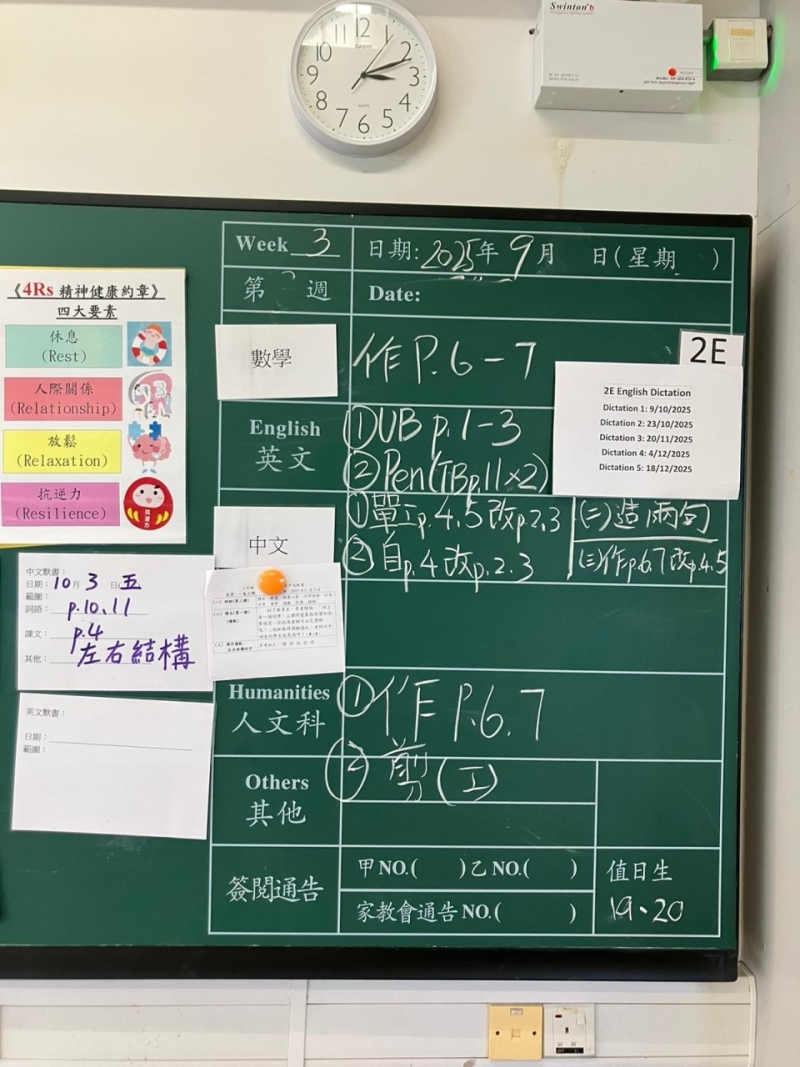 12
1
2
3
4
5
6
7
8
9
10
11
CASIO
QUARTZ
Swinton
Week 3
日期: 2025年 9月 日(星期 )
第 週
Date:
《4Rs 精神健康約章》
四大要素
休息
(Rest)
人際關係
(Relationship)
放鬆
(Relaxation)
抗逆力
(Resilience)
抗逆力
數學
作P.6-7
2E
2E English Dictation
Dictation 1: 9/10/2025
Dictation 2: 23/10/2025
Dictation 3: 20/11/2025
Dictation 4: 4/12/2025
Dictation 5: 18/12/2025
English
英文
①UB p.1-3
②Pen(TBp.11×2)
中文
①單工p.4.5改p.2.3
②自p.4改p.2.3
(二)造兩句
(三)作p.6.7改p.4.5
中文默書:
日期: 10月 3 日(五
範圍:
詞語: p.10,11
課文: p.4
其他: 左右結構
英文默書:
日期:
範圍:
Humanities
人文科
①作P.6.7
②剪(工)
Others
其他
簽閱通告
甲NO.( )乙NO.( )
家教會通告NO.( )
值日生
19、20